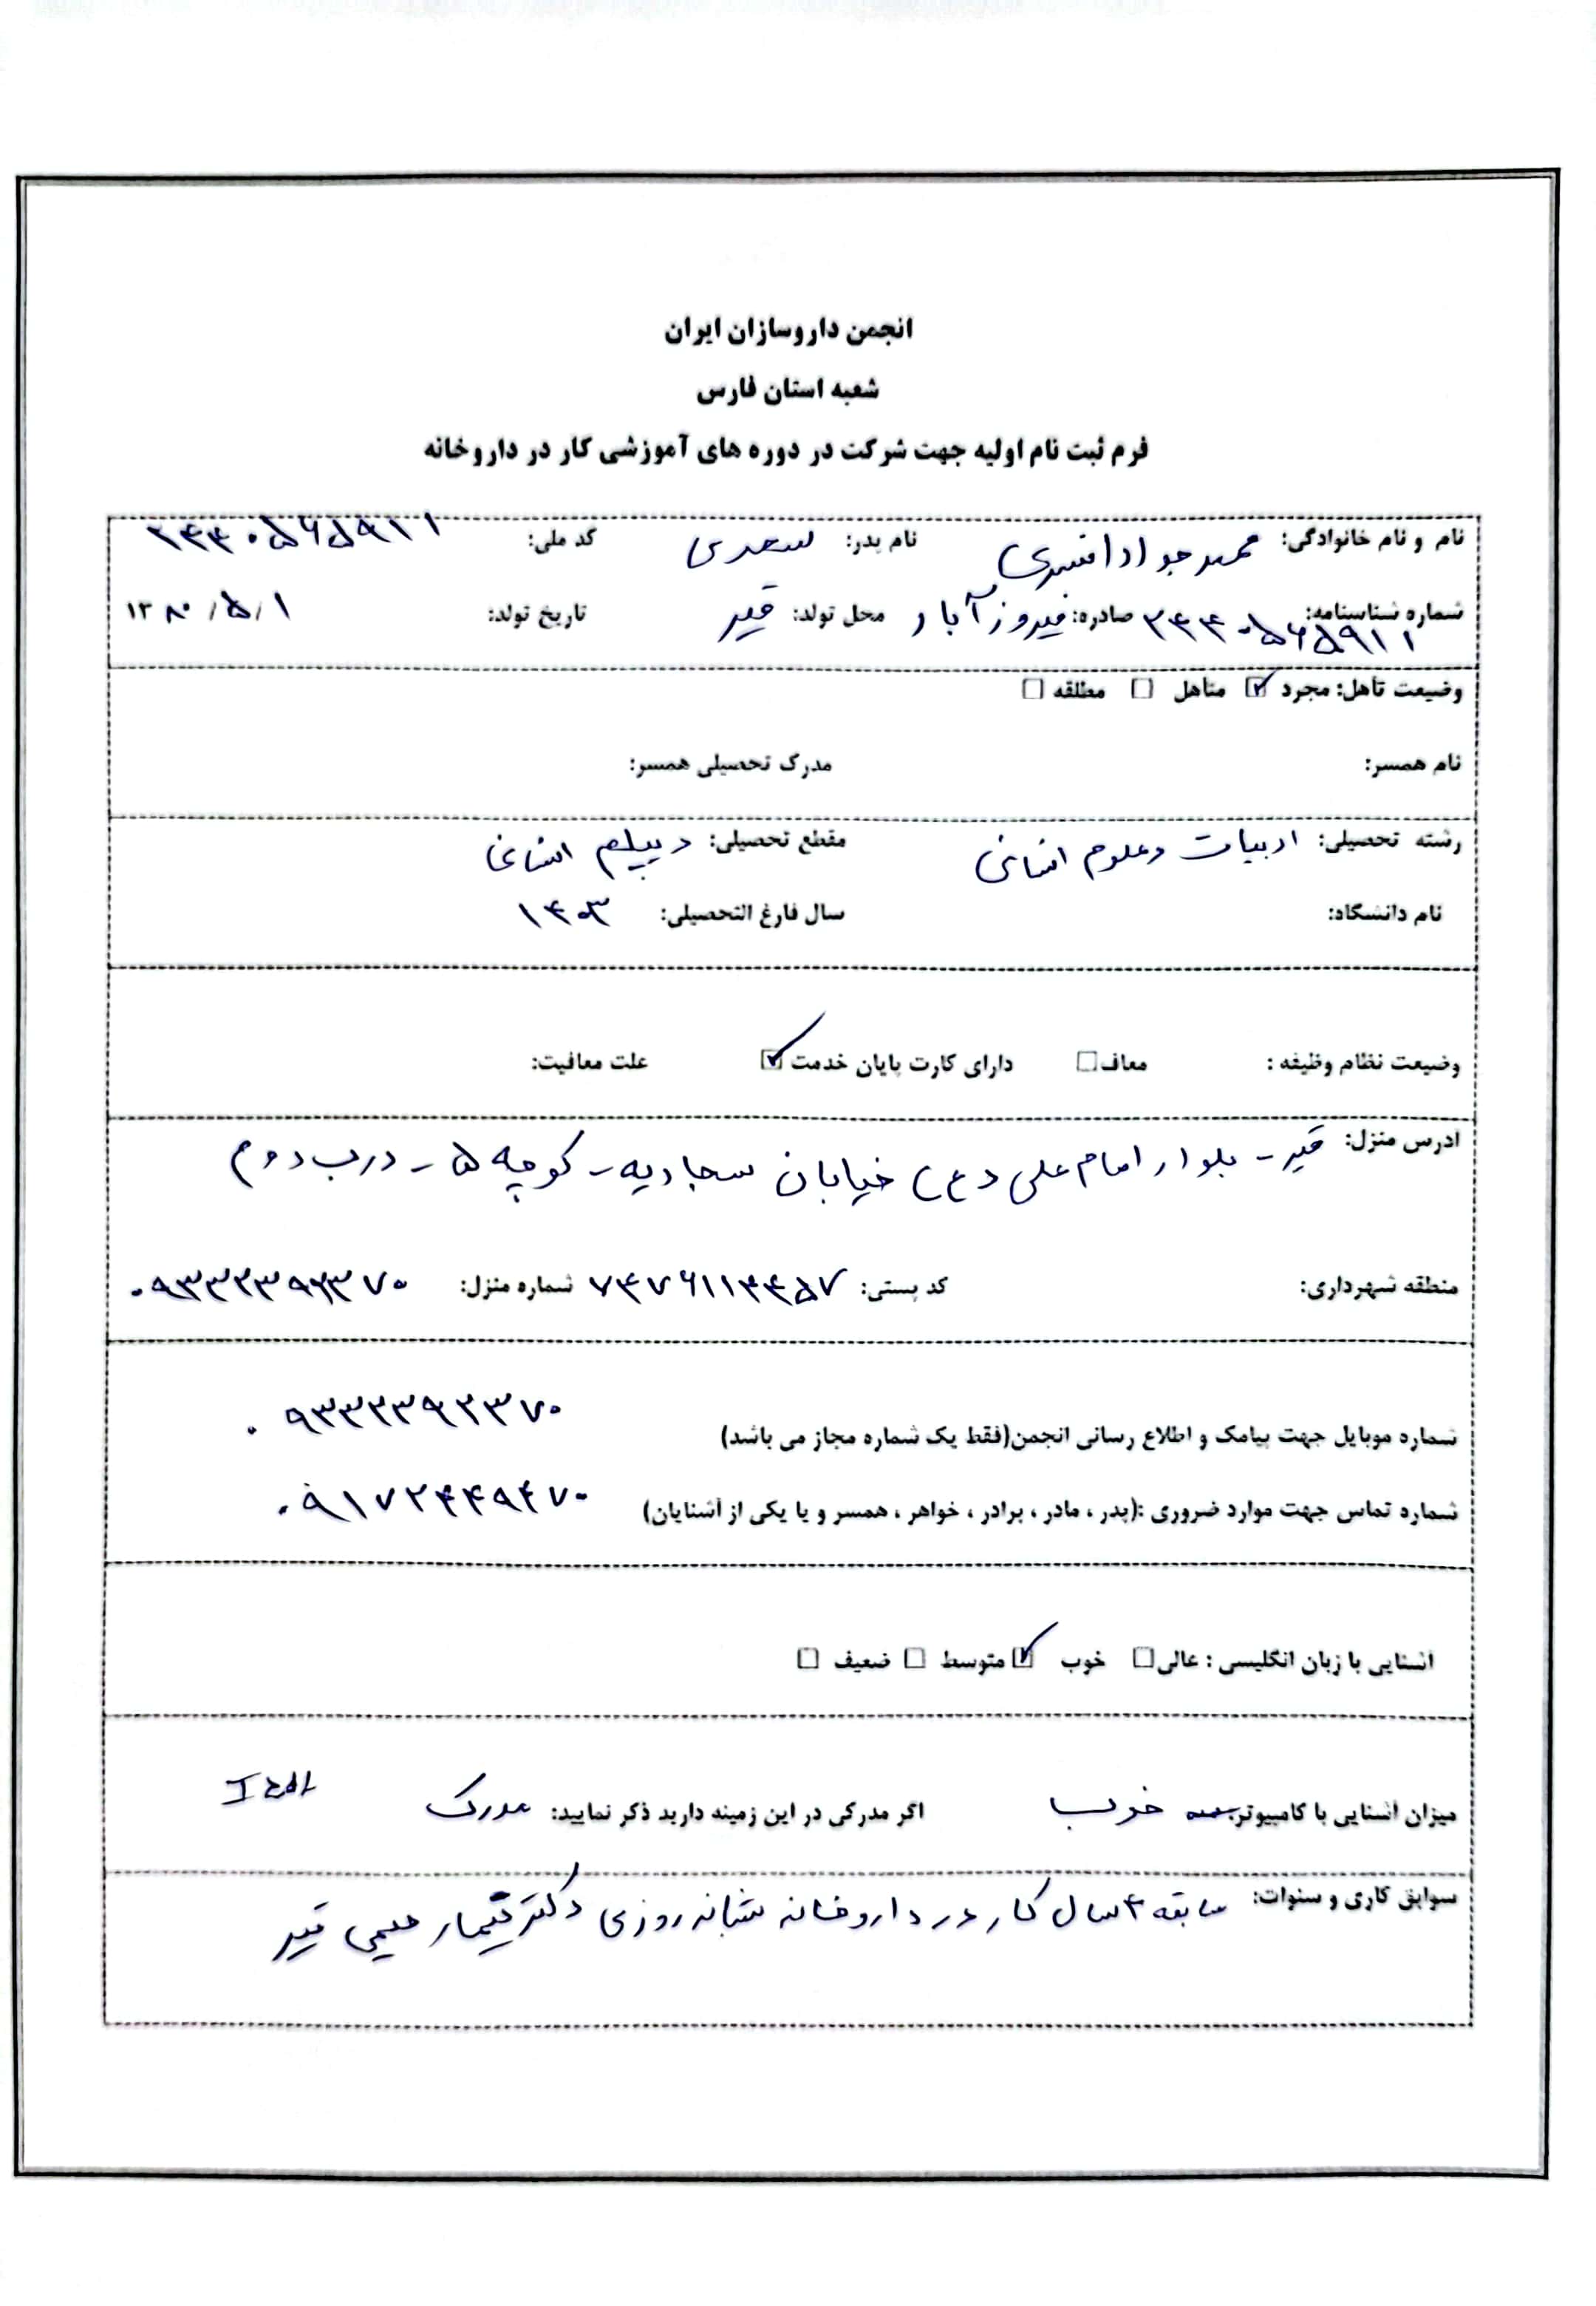 انجمن داروسازان ایران
شعبه استان فارس
فرم ثبت نام اولیه جهت شرکت در دوره های آموزشی کار در داروخانه
نام و نام خانوادگی: محمدجواد اسدی نام پدر: سعدی کد ملی: ۲۴۴۰۵۶۵۹۱۱
شماره شناسنامه: ۲۴۴۰۵۶۵۹۱۱ صادره: فیروزآباد محل تولد: قیر تاریخ تولد: ۱۳۸۰/۵/۱
وضیعت تأهل: مجرد ☑ متأهل ☐ مطلقه ☐
نام همسر: مدرک تحصیلی همسر:
رشته تحصیلی: ادبیات و علوم انسانی مقطع تحصیلی: دیپلم انسانی
نام دانشگاه: سال فارغ التحصیلی: ۱۴۰۳
وضیعت نظام وظیفه : معاف ☐ دارای کارت پایان خدمت ☑ علت معافیت:
آدرس منزل: قیر - بلوار امام علی (ع) خیابان سجادیه - کوچه ۵ - درب دوم
منطقه شهرداری: کد پستی: ۷۴۷۶۱۱۴۴۵۷ شماره منزل: ۰۹۳۳۳۳۹۲۳۷۰
شماره موبایل جهت پیامک و اطلاع رسانی انجمن(فقط یک شماره مجاز می باشد) ۰۹۳۳۳۳۹۲۳۷۰
شماره تماس جهت موارد ضروری :(پدر ، مادر ، برادر ، خواهر ، همسر و یا یکی از آشنایان) ۰۹۱۷۲۴۴۹۴۷۰
آشنایی با زبان انگلیسی : عالی ☐ خوب ☑ متوسط ☐ ضعیف ☐
میزان آشنایی با کامپیوتر: خوب اگر مدرکی در این زمینه دارید ذکر نمایید: مدرک
سوابق کاری و سنوات: سابقه ۴ سال کار در داروخانه شبانه روزی دکتر قیر